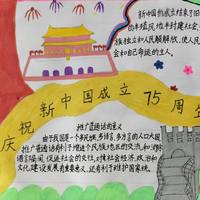 新中国的成立结束了旧
的半殖民地半封建社会,
族独立和人民解放,使人民
会和自己命运的主人。
庆祝新中国成立75周年
推广普通话的意义
由于我国是一个多民族、多语言、多方言的人口大国
推广普通话有利于增进各民族各地区的交流和消除
语言隔阂,促进社会的交往,对社会经济、政治和
文化建设发展有重要意义,还有利于维护国家统一